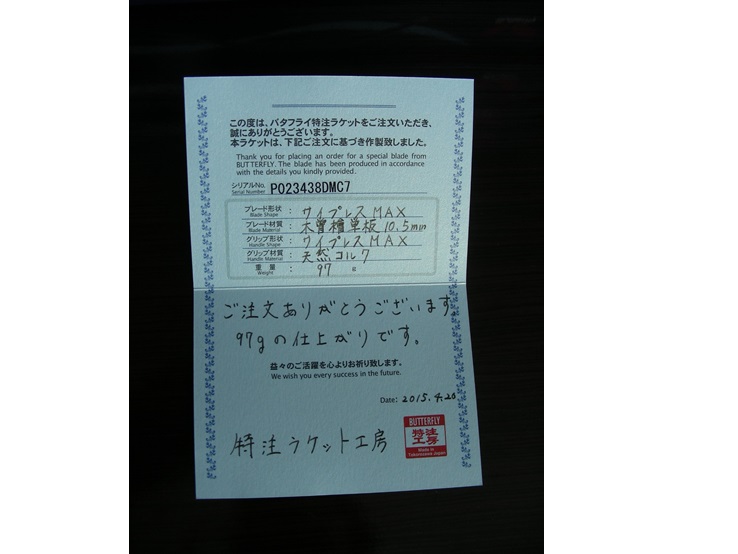 この度は、バタフライ特注ラケットをご注文いただき、
誠にありがとうございます。
本ラケットは、下記ご注文に基づき作製致しました。
Thank you for placing an order for a special blade from
BUTTERFLY. The blade has been produced in accordance
with the details you kindly provided.
シリアルNo.
Serial Number P023438DMC7
ブレード形状 : サイプレスMAX
Blade Shape
ブレード材質 : 木曽檜単板 10.5mm
Blade Material
グリップ形状 : サイプレスMAX
Handle Shape
グリップ材質 : 天然コルク
Handle Material
重量 : 97 g
Weight
ご注文ありがとうございます。
97gの仕上がりです。
益々のご活躍を心よりお祈り致します。
We wish you every success in the future.
Date: 2015.4.20
特注ラケット工房
BUTTERFLY
特注
工房
Made in
Tokorozawa Japan